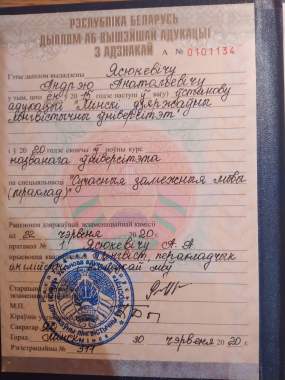 РЭСПУБЛІКА БЕЛАРУСЬ
ДЫПЛОМ АБ ВЫШЭЙШАЙ АДУКАЦЫІ
З АДЗНАКАЙ А № 0101134
Гэты дыплом выдадзены Ясюкевічу
Андрэю Анатольевічу
у тым, што ён у 20 годзе паступіў ва(у) установу
адукацыі "Мінскі дзяржаўны
лінгвістычны ўніверсітэт"
і ў 2020 годзе скончыў поўны курс
названага ўніверсітэта
па спецыяльнасці "Сучасныя замежныя мовы
(пераклад)"
Рашэннем дзяржаўнай экзаменацыйнай камісіі
ад чэрвеня 2020.
пратакол № 1 Ясюкевічу А. А.
прысвоена лінгвіст, перакладчык
Старшыня
М.П.
Сакратар
Горад Мінск 30 чэрвеня 2020 г.
Рэгістрацыйны №